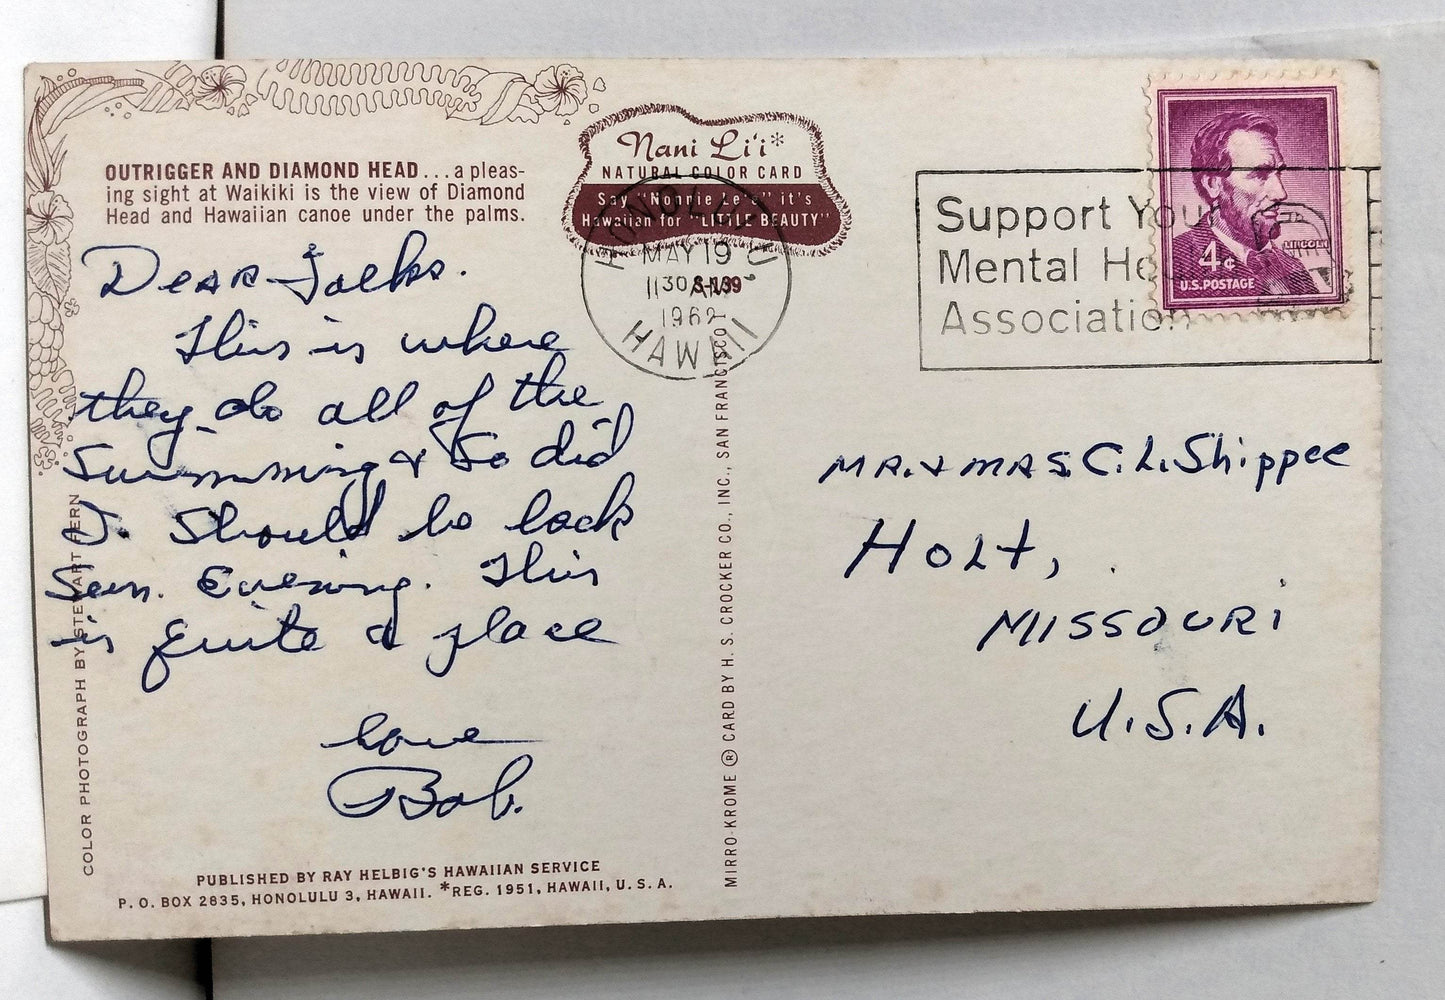 OUTRIGGER AND DIAMOND HEAD...a pleas-
ing sight at Waikiki is the view of Diamond
Head and Hawaiian canoe under the palms.
Nani Li'i*
NATURAL COLOR CARD
Say "Nonnie Le'e" it's
Hawaiian for "LITTLE BEAUTY"
HONOLULU
MAY 19
11 30 AM
S-139
1962
HAWAII
Support Your
Mental He
Association
LINCOLN
4¢
U.S. POSTAGE
Dear Folks.
This is where
they do all of the
Swimming & So did
I. Should be back
Sun. Evening. This
is quite a place
Love
Bob.
MR. & MRS. C. L. Shippee
HOLT,
MISSOURI
U.S.A.
COLOR PHOTOGRAPH BY STEWART FERN
MIRRO-KROME ® CARD BY H. S. CROCKER CO., INC., SAN FRANCISCO 1,
PUBLISHED BY RAY HELBIG'S HAWAIIAN SERVICE
P. O. BOX 2835, HONOLULU 3, HAWAII. *REG. 1951, HAWAII, U. S. A.